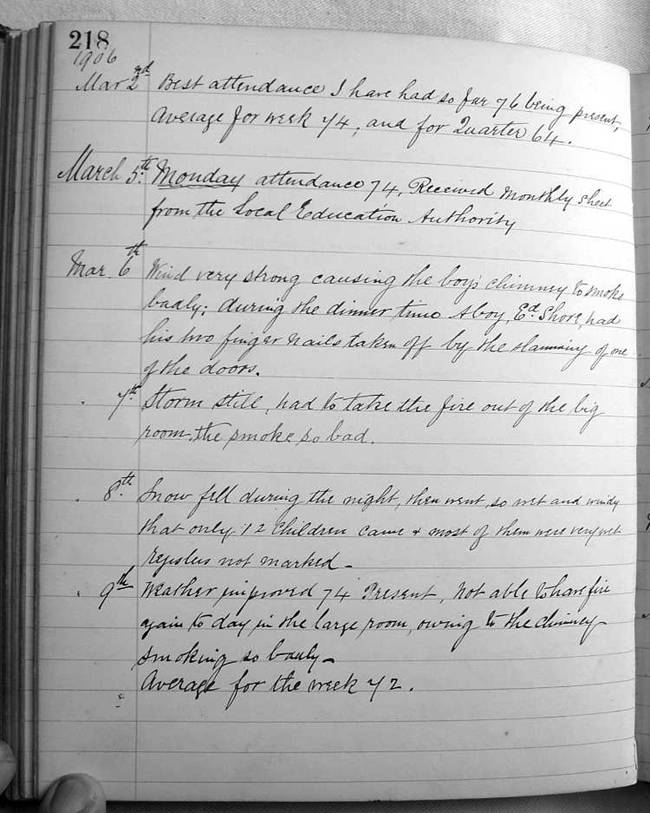 218
1906
Mar 2nd Best attendance I have had so far 76 being present,
Average for week 74, and for Quarter 64.
March 5th Monday attendance 74, Received monthly sheet
from the Local Education Authority
Mar 6th Wind very strong causing the boys chimney to smoke
badly; during the dinner time A boy, Ed. Shore, had
his two finger nails taken off by the slamming of one
of the doors.
7th Storm still, had to take the fire out of the big
room, the smoke so bad.
8th Snow fell during the night, then went so wet and windy
that only 12 Children came & most of them were very wet
registers not marked -
9th Weather improved 74 Present, Not able to have fire
again to day in the large room, owing to the chimney
smoking so badly -
Average for the week 72.